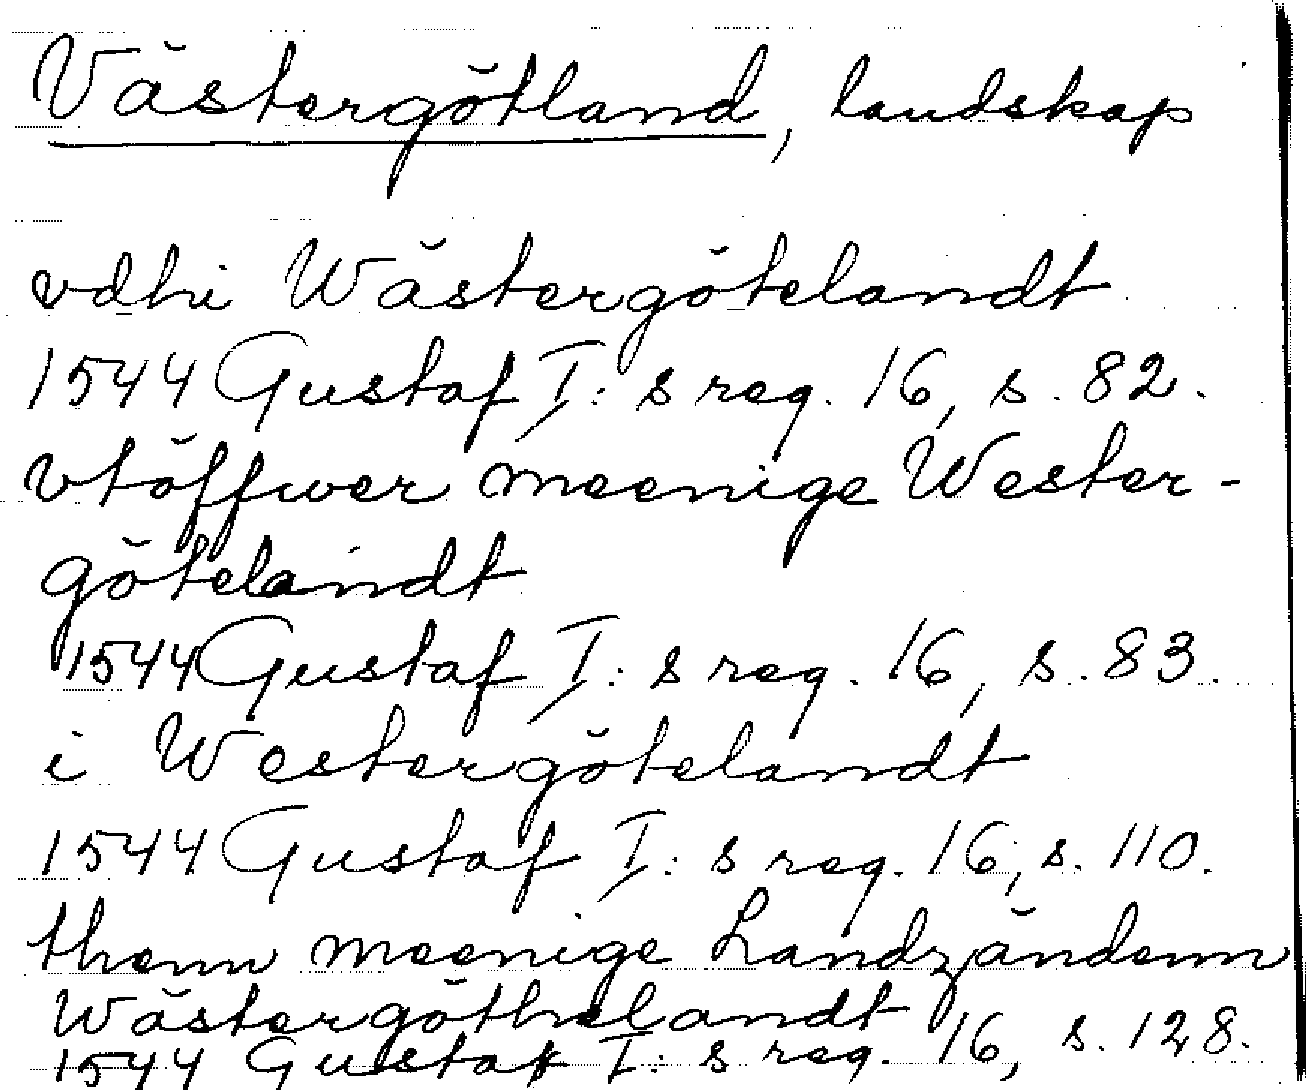 Västergötland, landskap
vdhi Wästergötelandt
1544 Gustaf I:s reg. 16, s. 82.
vtöffwer meenige Wester-
götelandt
1544 Gustaf I:s reg. 16, s. 83.
i Westergötelandt
1544 Gustaf I:s reg. 16, s. 110.
thenn meenige Landzändenn
Wästergöthelandt
1544 Gustaf I:s reg. 16, s. 128.